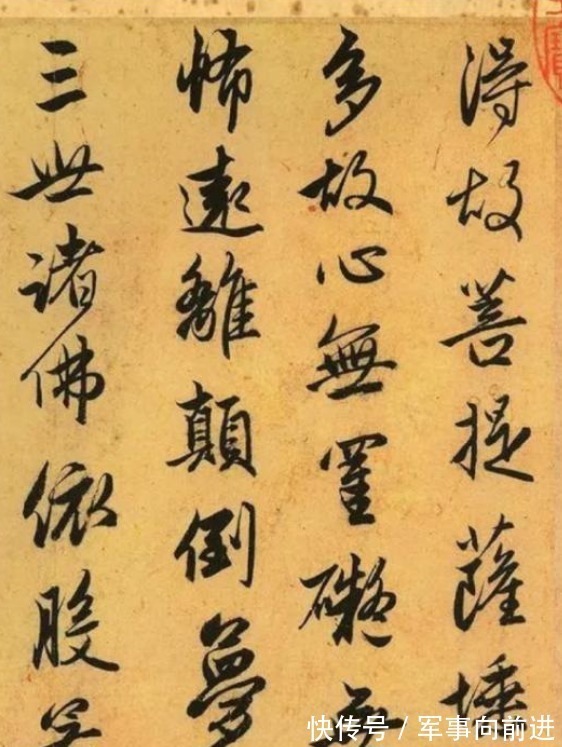 得故菩提薩埵
多故心無罣礙無
怖遠離顛倒夢
三世諸佛依般若
快传号/军事向前进